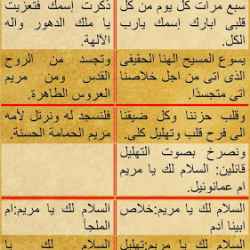 سبع مرات كل يوم من كل
قلبى ابارك إسمك يارب
الكل.
ذكرت إسمك فتعزيت
يا ملك الدهور واله
الآلهة.
يسوع المسيح الهنا الحقيقى
الذى اتى من اجل خلاصنا
متجسدًا.
وتجسد من الروح
القدس ومن مريم
العروس الطاهرة.
وقلب حزننا وكل ضيقنا
إلى فرح قلب وتهليل كلى.
فلنسجد له ونرتل لأمه
مريم الحمامة الحسنة.
ونصرخ بصوت التهليل
قائلين: السلام لك يا مريم
ام عمانوئيل.
السلام لك يا مريم:خلاص
ابينا آدم
السلام لك يا مريم:ام
الملجأ
السلام لك يا مريم:تهليل
السلام لك يا